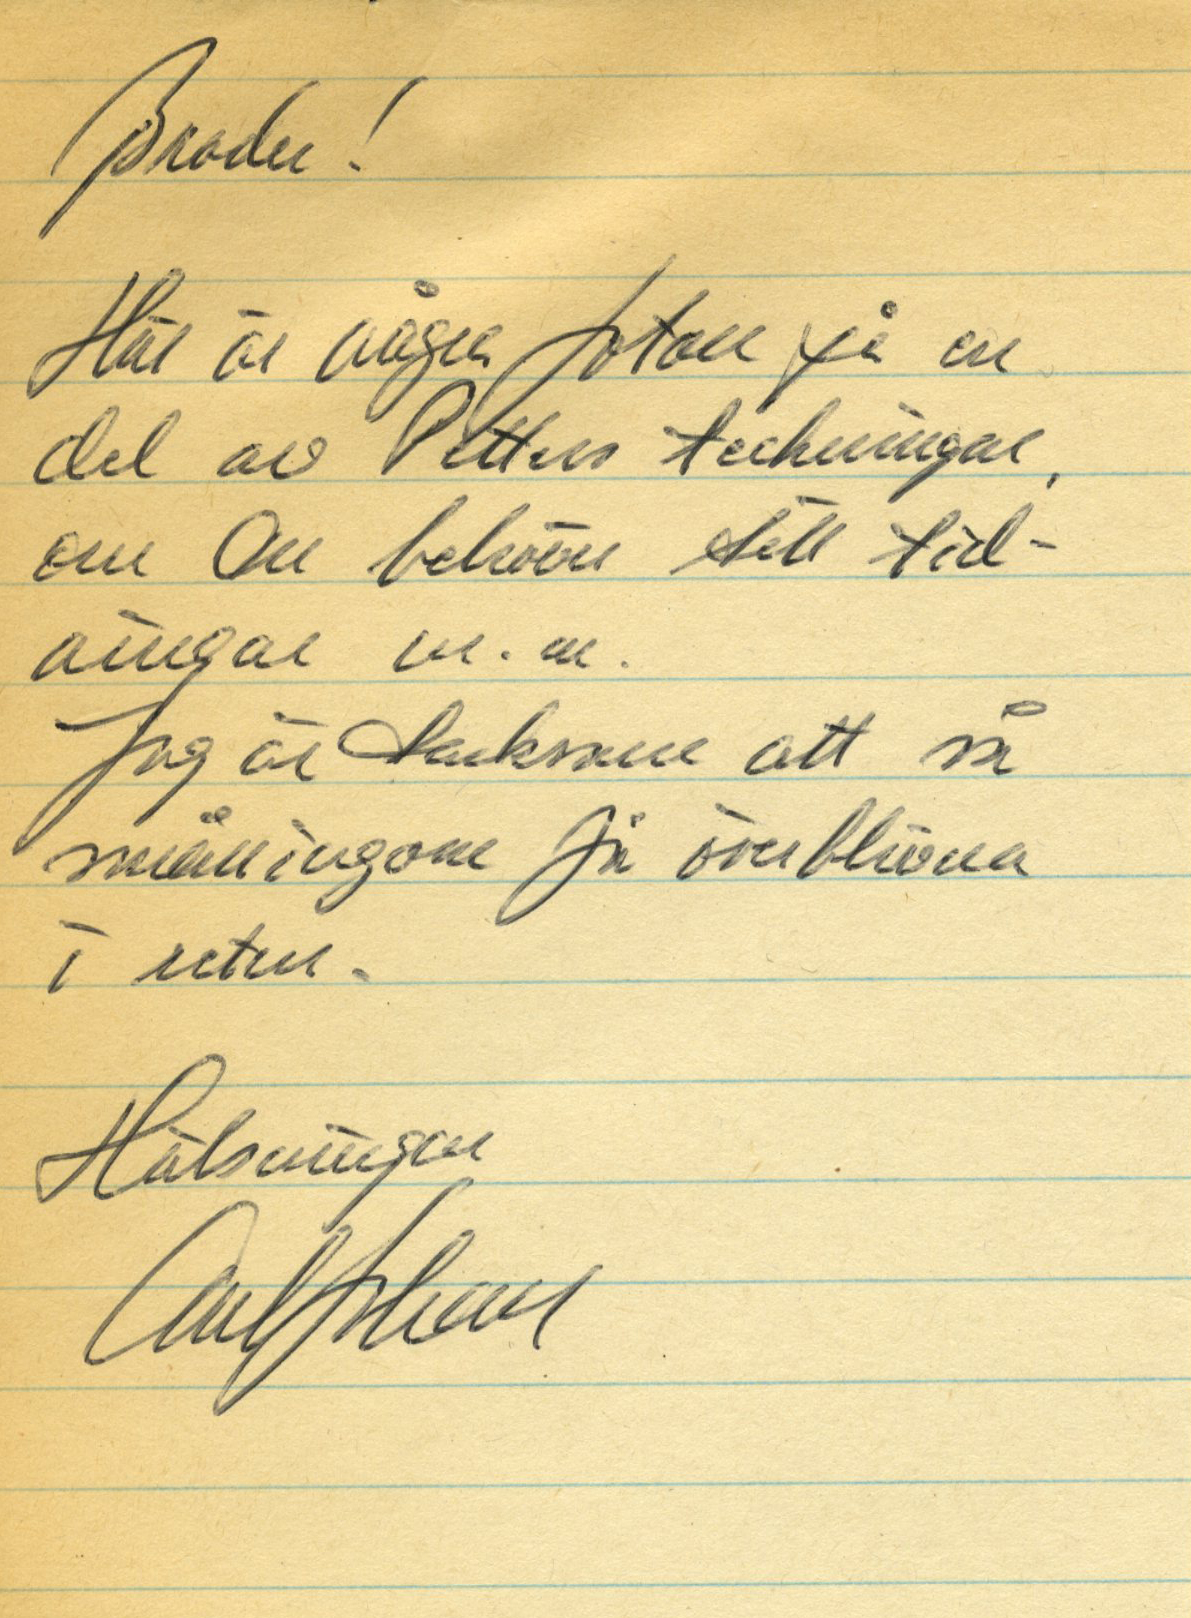 Broder!
Här är några foton på en
del av Petters teckningar,
om Du behöver till tid-
ningar m.m.
Jag är tacksam att så
småningom få överblivna
i retur.
Hälsningar
Carl Johan